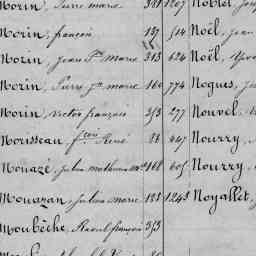 Morin, Pierre marie 381 1207 Noblet,
Morin, françois 137 514 Noël, Jean
Morin, Jean Pre marie 313 624 Noël, Yvo
Morin, Pierre Jn marie 160 774 Nogues, Jean
Morin, victor françois 353 277 Nouvel,
Morisseau, fçois René 88 447 Nourry,
Mouazé, Julien mathurin 168 605 Nourry,
Mouazan, Julien marie 188 1245 Noyallet,
Moubèche, Raoul françois 353